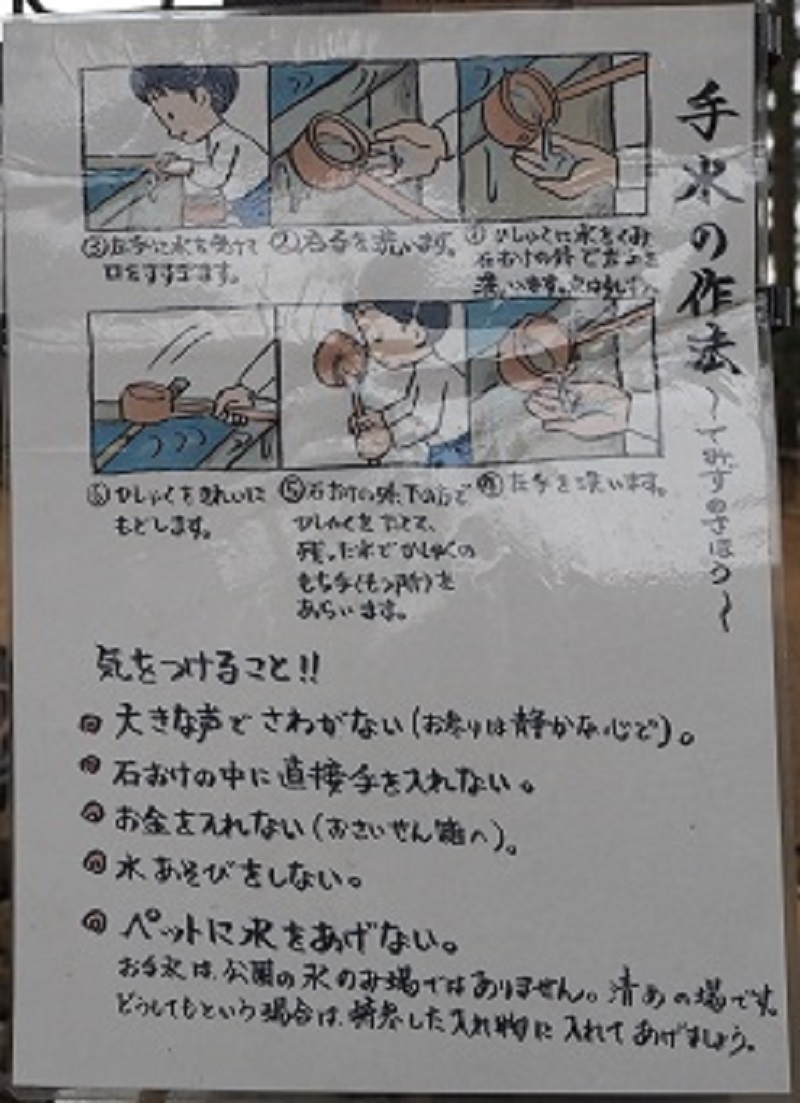 手水の作法
〜てみずのさほう〜
① ひしゃくに水をくみ
石おけの外で右手を
洗います。
② 右手を洗います。
③ 左手に水を受けて
口をすすぎます。
④ 左手を洗います。
⑤ 石おけの外、下の方で
ひしゃくをたてて、
残った水でひしゃくの
もち手(もつ所)を
あらいます。
⑥ ひしゃくをきれいに
もどします。
気をつけること!!
◎ 大きな声でさわがない(お参りは静かな心で)。
◎ 石おけの中に直接手を入れない。
◎ お金を入れない(おさいせん箱へ)。
◎ 水あそびをしない。
◎ ペットに水をあげない。
お手水は、公園の水のみ場ではありません。清めの場です。
どうしてもという場合は、持参した入れ物に入れてあげましょう。